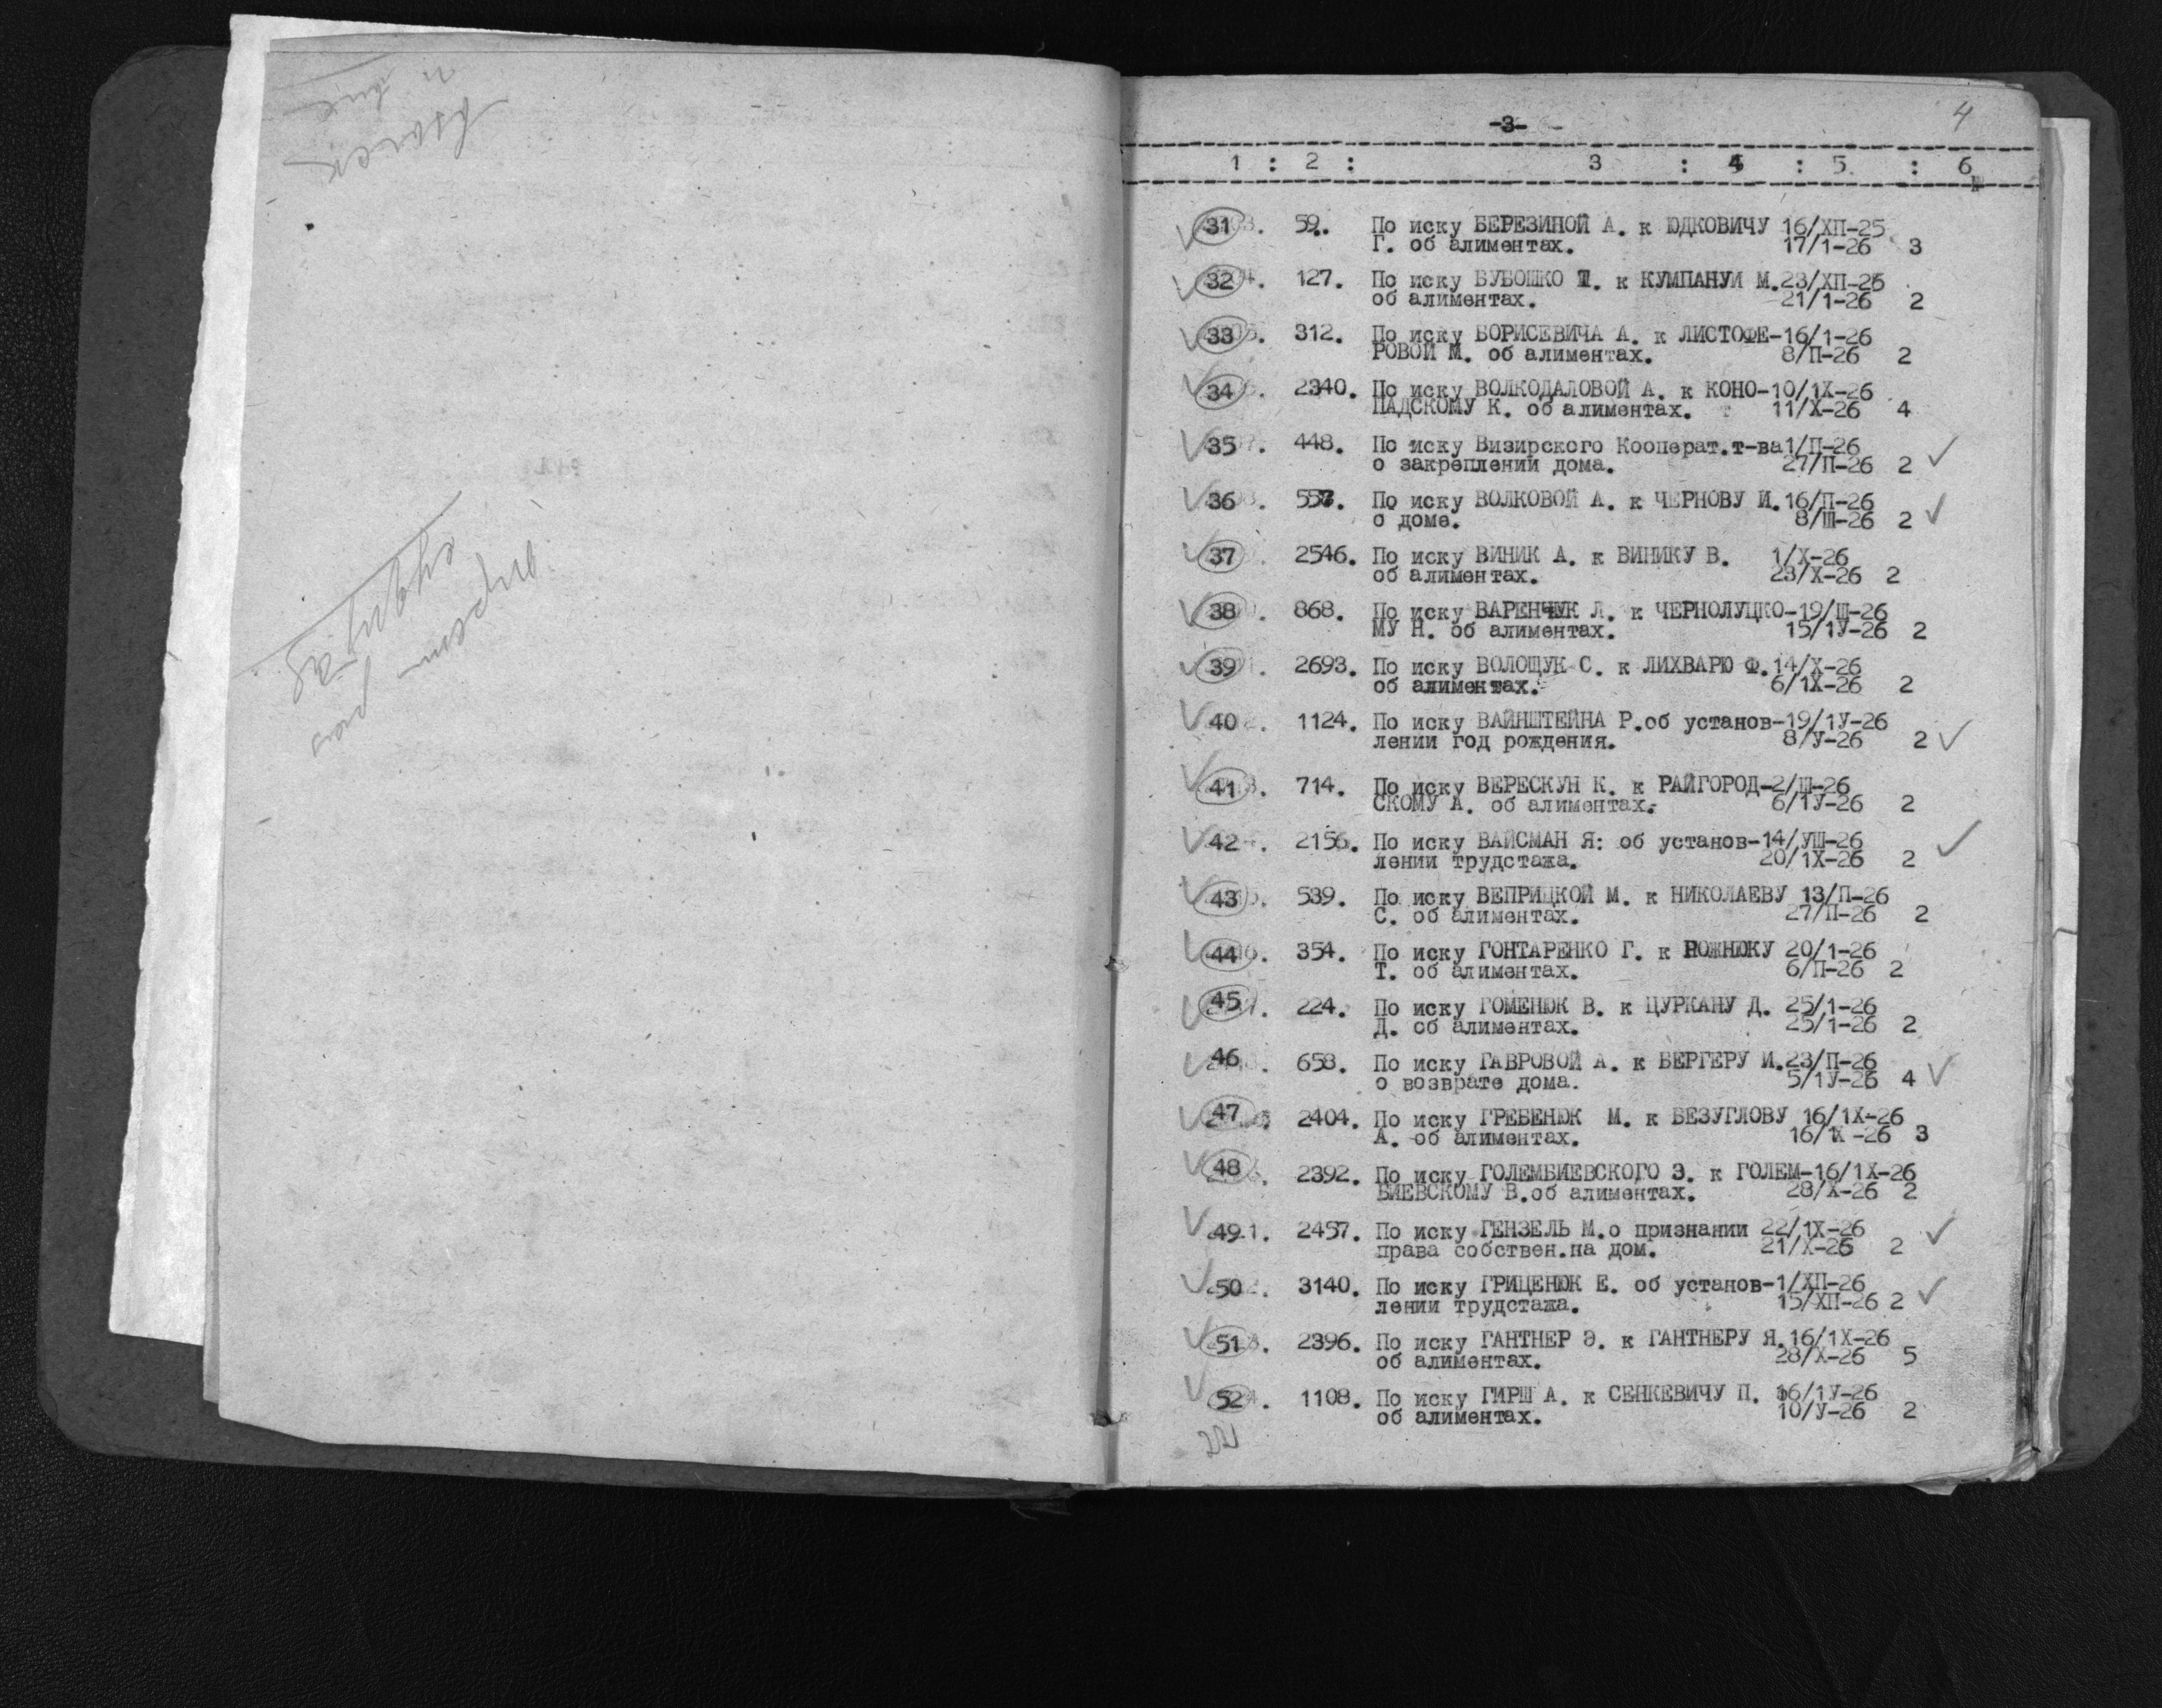 -3-
4
1 : 2 : 3 : 4 : 5 : 6
31 59. По иску БЕРЕЗИНОЙ А. к ЮДКОВИЧУ 16/ХП-25
Г. об алиментах. 17/1-26 3
32 127. По иску БУБОШКО Т. к КУМПАНУИ М.23/ХП-26
об алиментах. 21/1-26 2
33 312. По иску БОРИСЕВИЧА А. к ЛИСТОФЕ-16/1-26
РОВОЙ М. об алиментах. 8/П-26 2
34 2340. По иску ВОЛКОДАЛОВОЙ А. к КОНО-10/1Х-26
ПАДСКОМУ К. об алиментах. 11/Х-26 4
35 448. По иску Визирского Кооперат.т-ва1/П-26
о закреплений дома. 27/П-26 2
36 557. По иску ВОЛКОВОЙ А. к ЧЕРНОВУ И.16/П-26
о доме. 8/Ш-26 2
37 2546. По иску ВИНИК А. к ВИНИКУ В. 1/Х-26
об алиментах. 23/Х-26 2
38 868. По иску ВАРЕНЧУК Л. к ЧЕРНОЛУЦКО-19/Ш-26
МУ Н. об алиментах. 15/1У-26 2
39 2693. По иску ВОЛОЩУК С. к ЛИХВАРЮ Ф.14/Х-26
об алиментах. 6/1Х-26 2
40 1124. По иску ВАЙНШТЕЙНА Р.об установ-19/1У-26
лении год рождения. 8/У-26 2
41 714. По иску ВЕРЕСКУН К. к РАЙГОРОД-2/Ш-26
СКОМУ А. об алиментах. 6/1У-26 2
42 2156. По иску ВАЙСМАН Я: об установ-14/УШ-26
лении трудстажа. 20/1Х-26 2
43 539. По иску ВЕПРИЦКОЙ М. к НИКОЛАЕВУ 13/П-26
С. об алиментах. 27/П-26 2
44 354. По иску ГОНТАРЕНКО Г. к РОЖНЮКУ 20/1-26
Т. об алиментах. 6/П-26 2
45 224. По иску ГОМЕНЮК В. к ЦУРКАНУ Д. 25/1-26
Д. об алиментах. 25/1-26 2
46 658. По иску ГАВРОВОЙ А. к БЕРГЕРУ И.23/П-26
о возврате дома. 5/1У-26 4
47 2404. По иску ГРЕБЕНЮК М. к БЕЗУГЛОВУ 16/1Х-26
А. об алиментах. 16/1Х-26 3
48 2392. По иску ГОЛЕМБИЕВСКОГО Э. к ГОЛЕМ-16/1Х-26
БИЕВСКОМУ В.об алиментах. 28/Х-26 2
49 2457. По иску ГЕНЗЕЛЬ М.о признании 22/1Х-26
права собствен.на дом. 21/Х-26 2
50 3140. По иску ГРИЦЕНЮК Е. об установ-1/ХП-26
лении трудстажа. 15/ХП-26 2
51 2396. По иску ГАНТНЕР Э. к ГАНТНЕРУ Я.16/1Х-26
об алиментах. 28/Х-26 5
52 1108. По иску ГИРШ А. к СЕНКЕВИЧУ П. 16/1У-26
об алиментах. 10/У-26 2